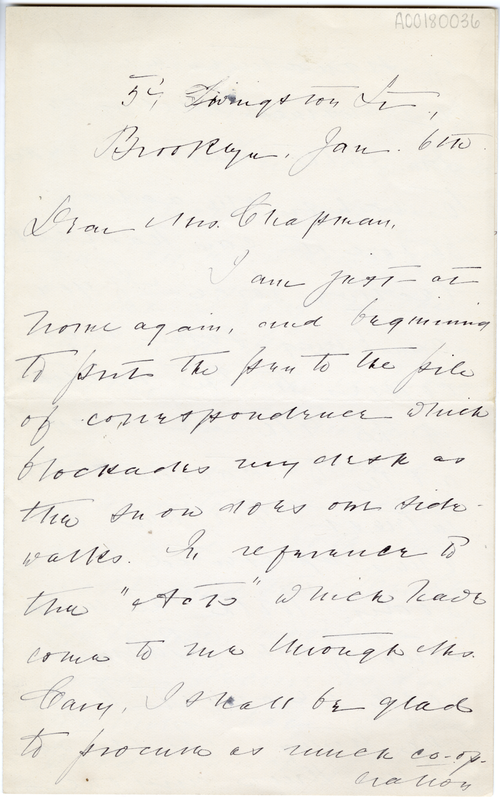 AC0180036
54 Livingston St,
Brooklyn, Jan. 6th
Dear Mrs. Chapman,
I am just at
home again, and beginning
to put the pen to the pile
of correspondence which
blockades my desk as
the snow does our side-
walks. In reference to
the "Acts" which have
come to me through Mrs.
Cary, I shall be glad
to procure as much co-op-
eration